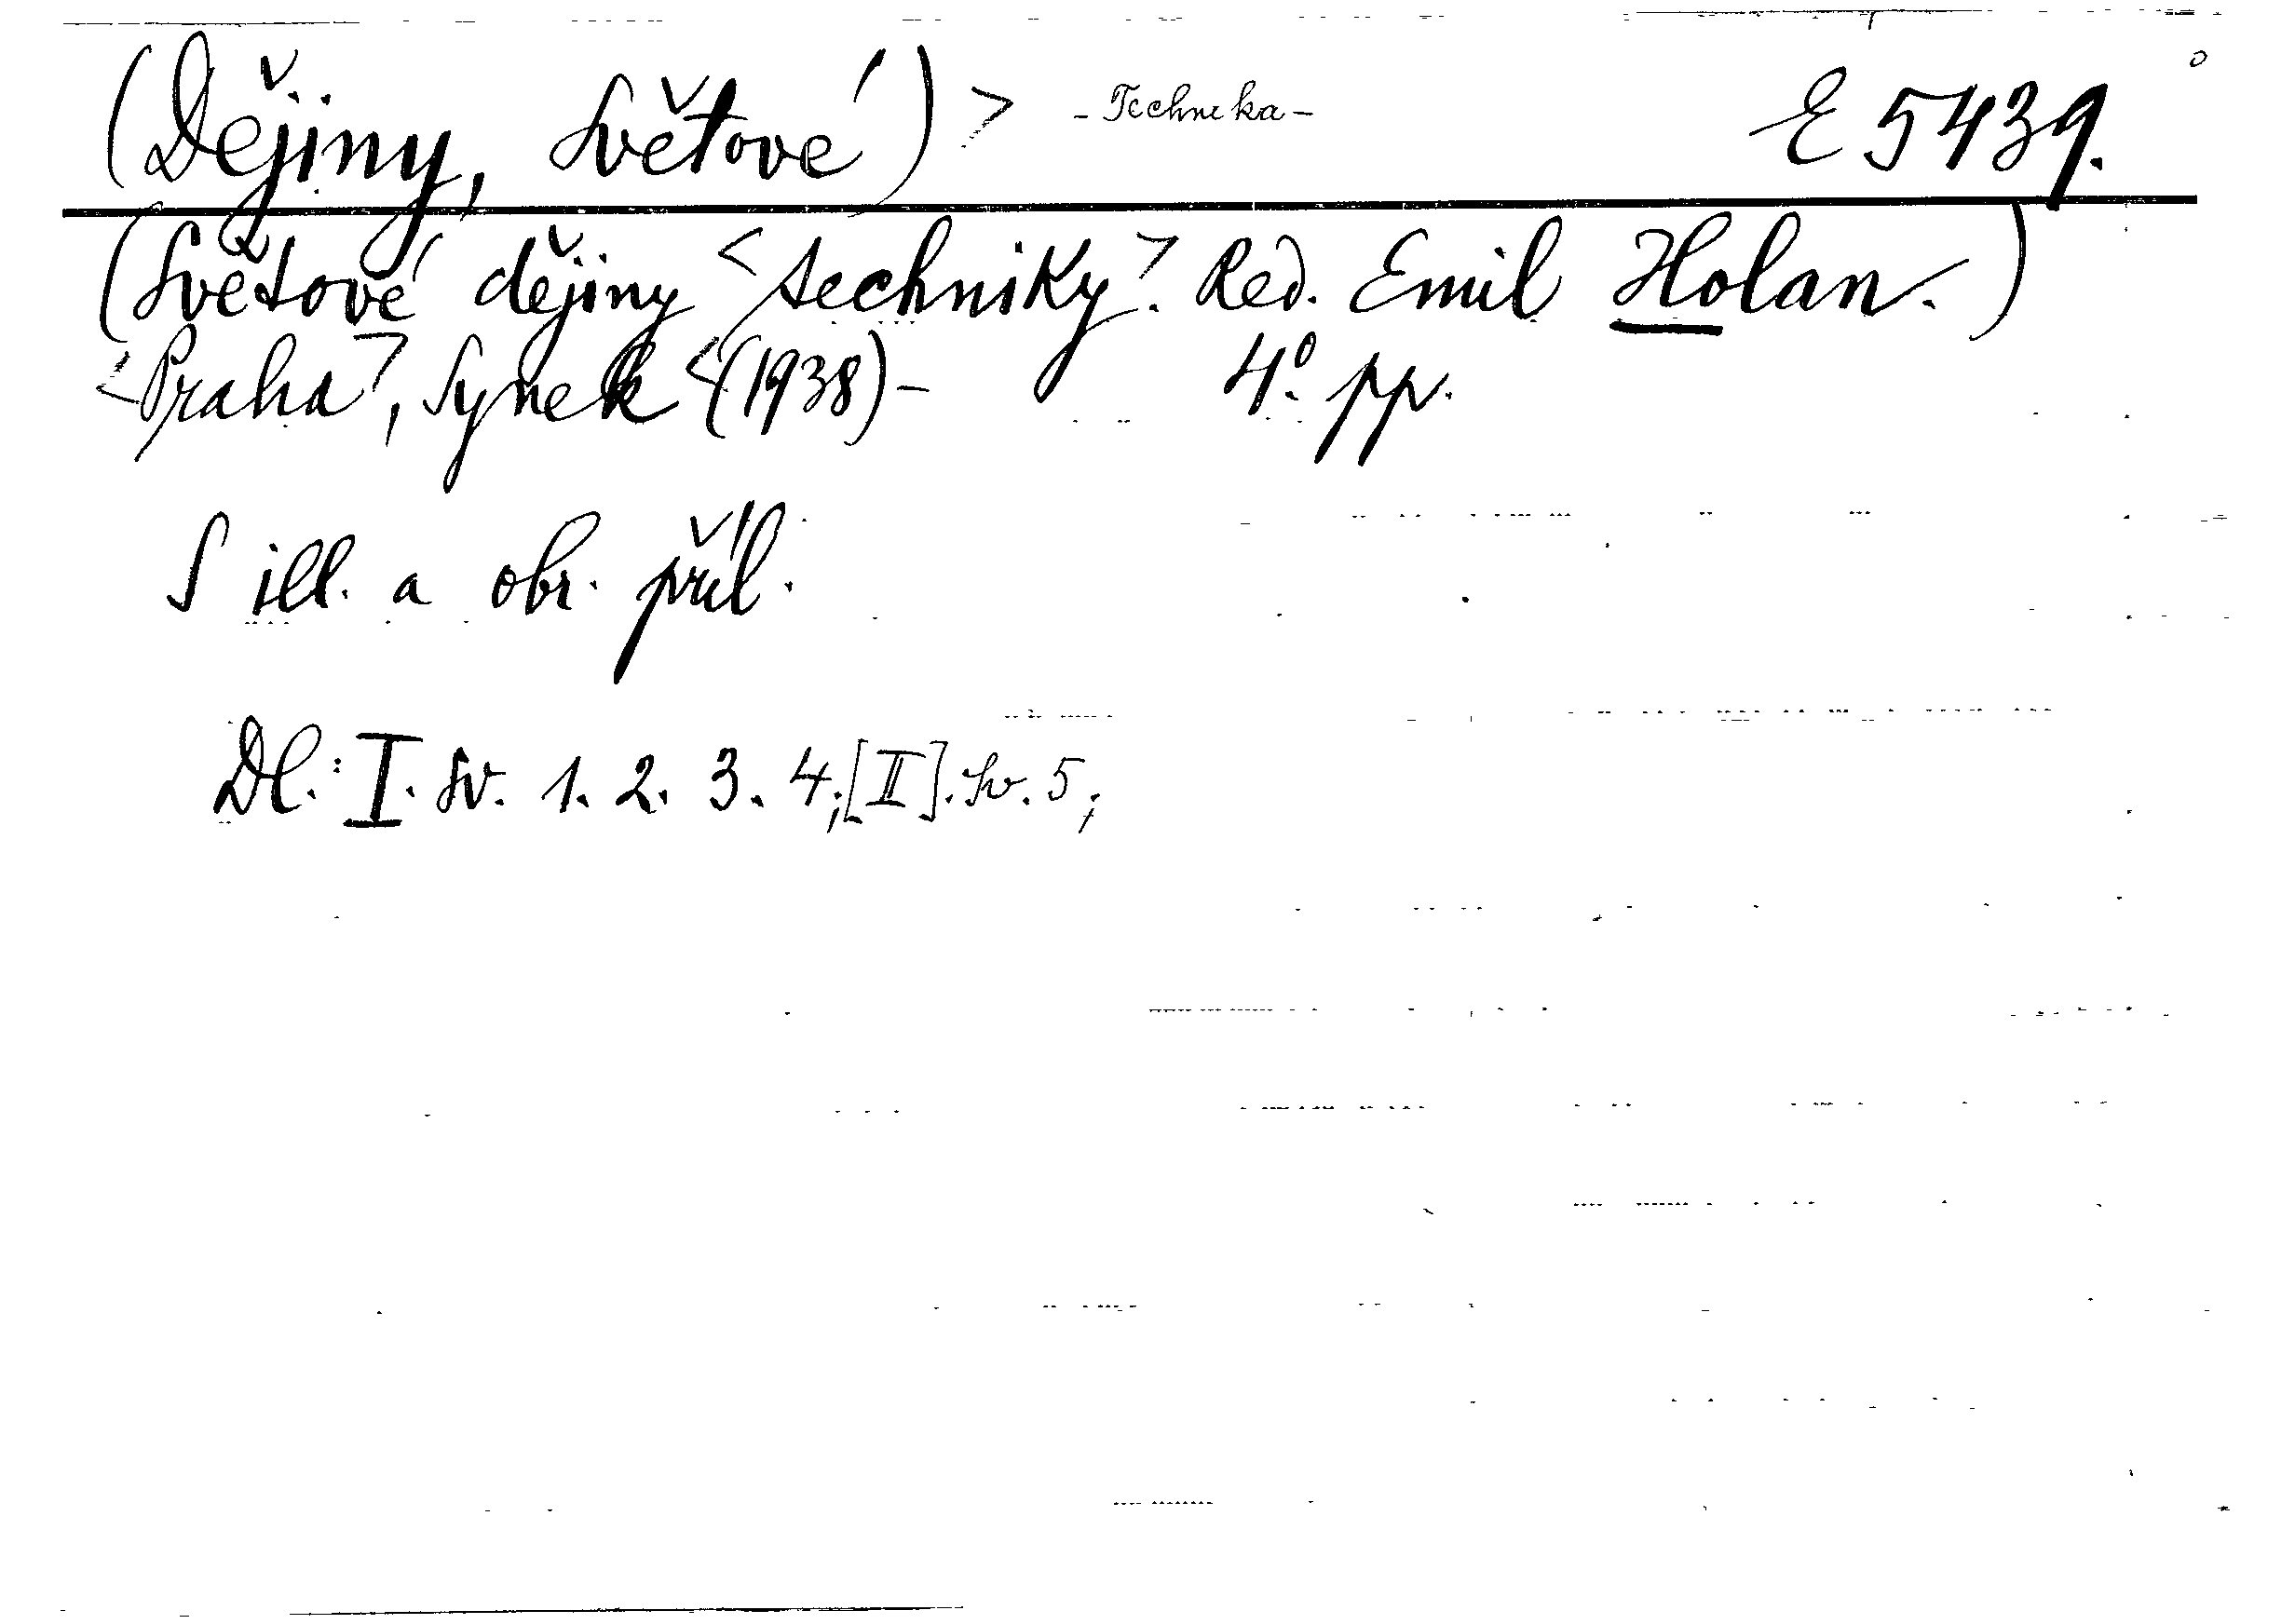 (Dějiny, Světové) > - Technika - E 5439.
(Světové dějiny <techniky>. Red. Emil Holan.)
<Praha>, Synek <(1938)- 4°. pp.
S ill. a obr. příl.
Dl.: I. sv. 1. 2. 3. 4; [II]. sv. 5;